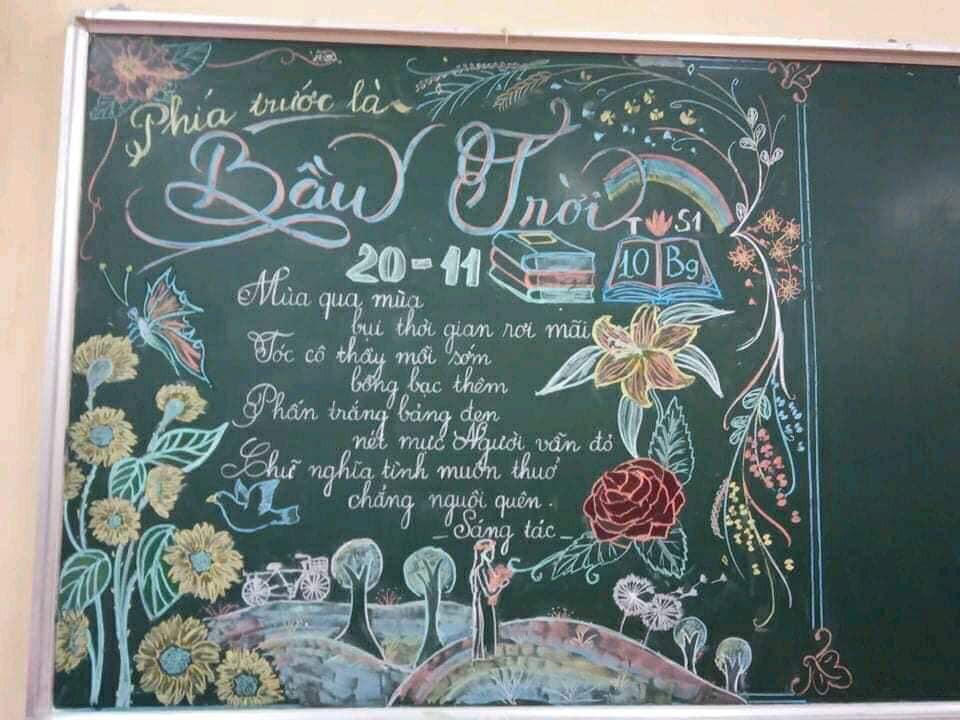 Phía trước là
Bầu Trời
T S1
20-11
10 B9
Mùa qua mùa
bụi thời gian rơi mãi
Tóc cô thầy mỗi sớm
bỗng bạc thêm
Phấn trắng bảng đen
nét mực Người vẫn đỏ
Chữ nghĩa tình muôn thuở
chẳng nguôi quên.
- Sáng tác -